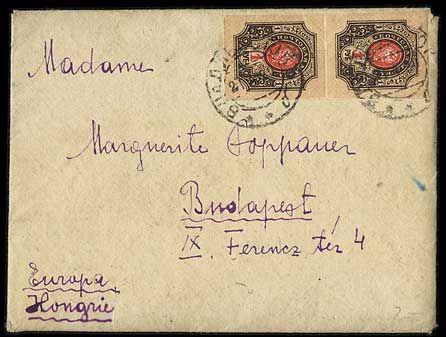 Madame
Marguerite Toppauer
Budapest
IX. Ferencz tér 4
Europa
Hongrie